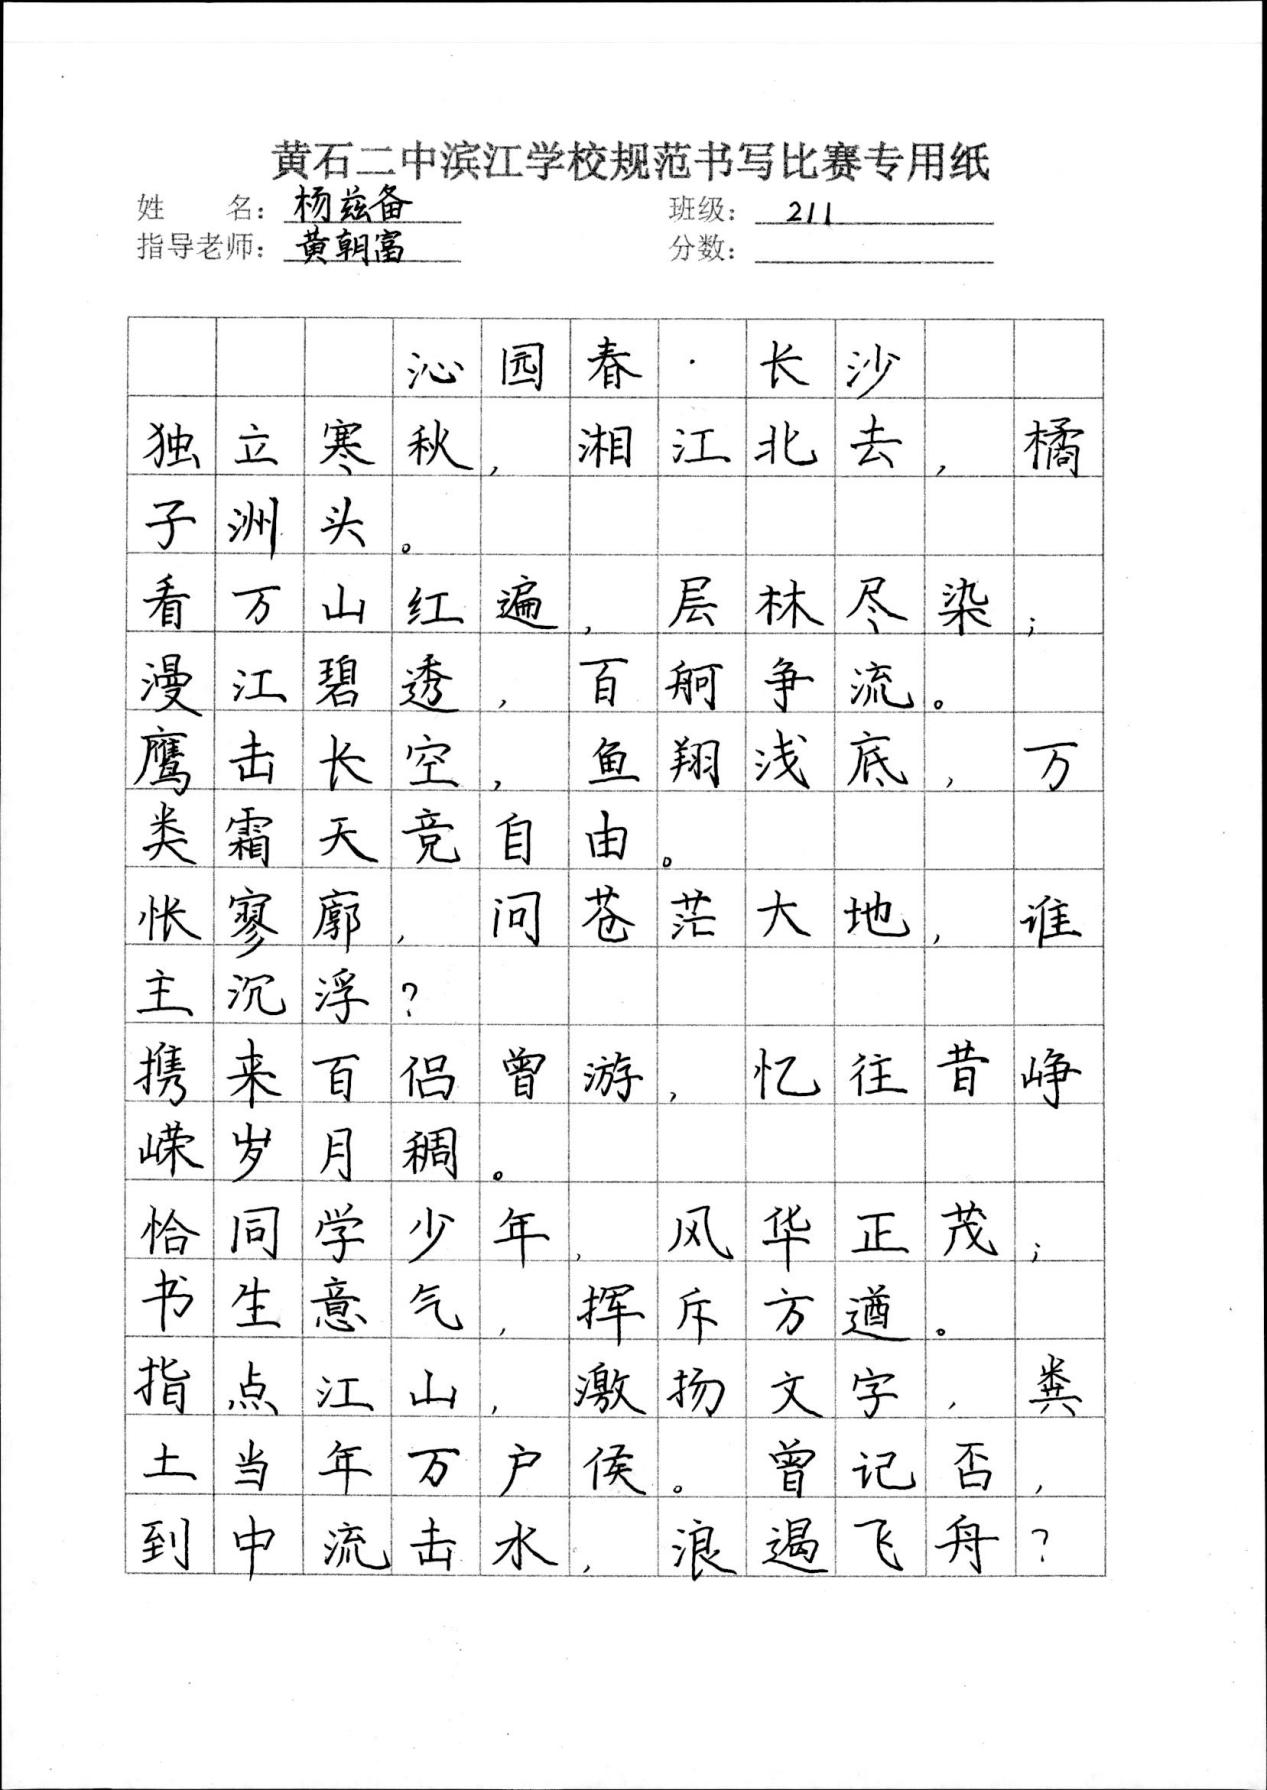 黄石二中滨江学校规范书写比赛专用纸
姓 名：杨兹备 班级：211
指导老师：黄朝富 分数：
沁园春·长沙
独立寒秋，湘江北去，橘
子洲头。
看万山红遍，层林尽染；
漫江碧透，百舸争流。
鹰击长空，鱼翔浅底，万
类霜天竞自由。
怅寥廓，问苍茫大地，谁
主沉浮？
携来百侣曾游，忆往昔峥
嵘岁月稠。
恰同学少年，风华正茂；
书生意气，挥斥方遒。
指点江山，激扬文字，粪
土当年万户侯。曾记否，
到中流击水，浪遏飞舟？